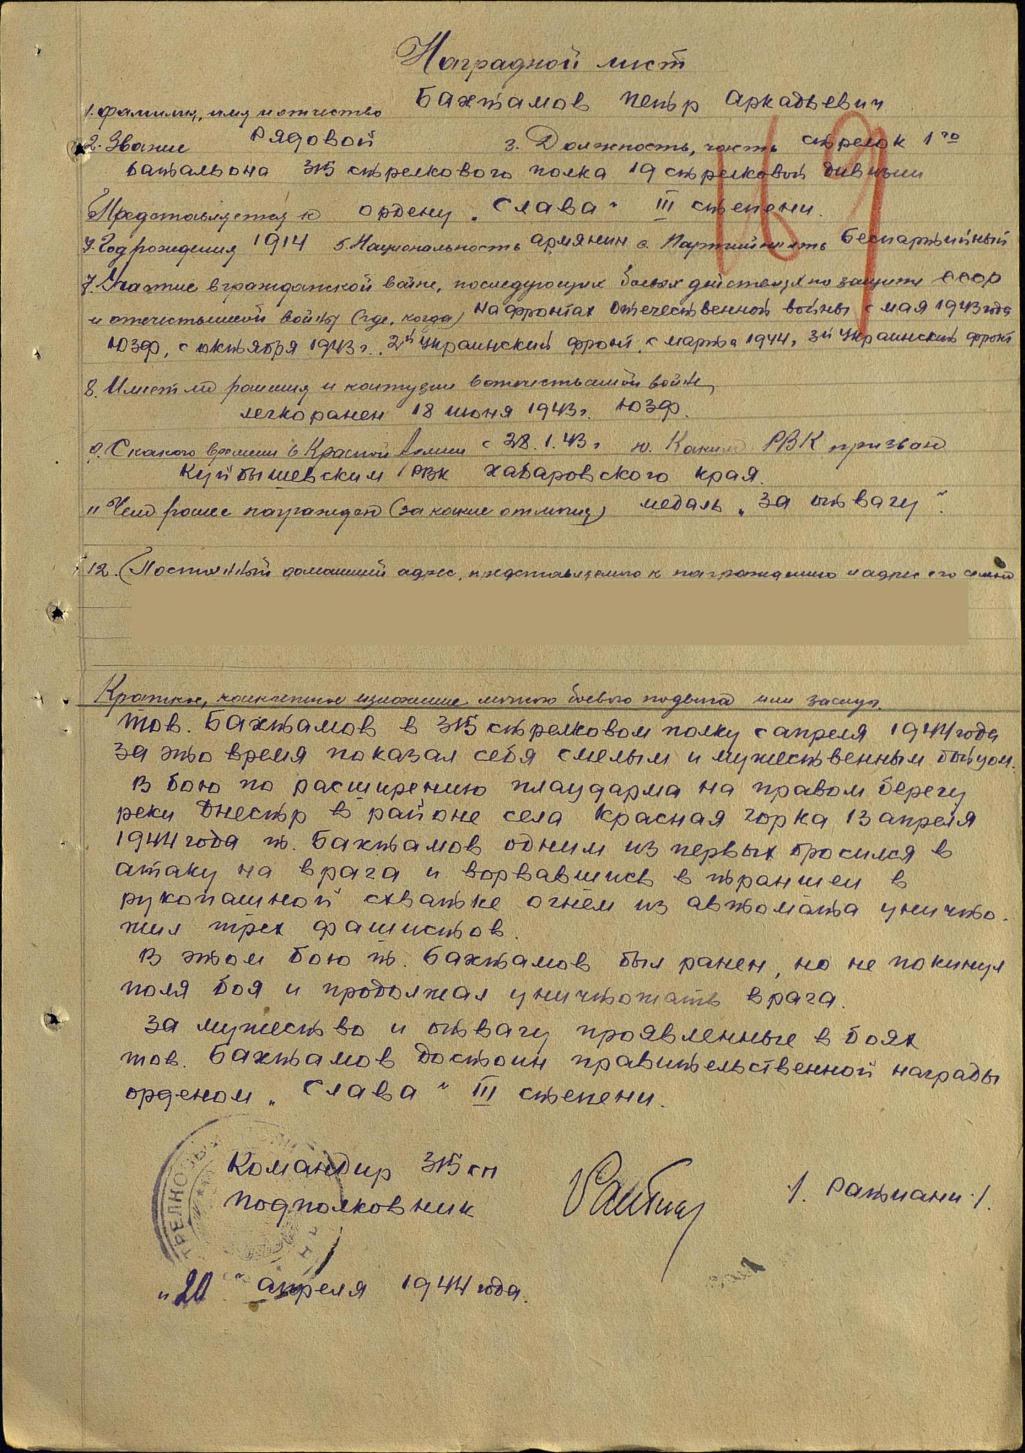 Наградной лист
1. Фамилия, имя и отчество Бахтамов Петр Аркадьевич
2. Звание Рядовой 3. Должность, часть стрелок 1го
батальона 315 стрелкового полка 19 стрелковой дивизии
Представляется к ордену „Слава" III степени.
4. Год рождения 1914 5. Национальность армянин 6. Партийность Беспартийный
7. Участие в гражданской войне, последующих боевых действиях по защите СССР
и отечественной войны (где, когда) На фронтах Отечественной войны с мая 1943 года
ЮЗФ, с октября 1943 г. 2й Украинский фронт, с марта 1944, 3й Украинский фронт
8. Имеет ли ранения и контузии в отечественной войне,
легко ранен 18 июня 1943 г. ЮЗФ.
9. С какого времени в Красной Армии с 28.1.43 г 10. Каким РВК призван
Куйбышевским РВК Хабаровского края.
11 Чем ранее награжден (за какие отличия) медаль „За отвагу".
12. Постоянный домашний адрес, представляемого к награждению и адрес его семьи
Краткое, конкретное изложение личного боевого подвига или заслуг.
Тов. Бахтамов в 315 стрелковом полку с апреля 1944 года
за это время показал себя смелым и мужественным бойцом.
В бою по расширению плацдарма на правом берегу
реки Днестр в районе села Красная Горка 13 апреля
1944 года т. Бахтамов одним из первых бросился в
атаку на врага и ворвавшись в траншеи в
рукопашной схватке огнём из автомата уничто-
жил трех фашистов.
В этом бою т. Бахтамов был ранен, но не покинул
поля боя и продолжал уничтожать врага.
За мужество и отвагу проявленные в боях
тов. Бахтамов достоин правительственной награды
орденом „Слава" III степени.
Командир 315 сп
Подполковник /. Ратиани ./.
„20" апреля 1944 года.
169